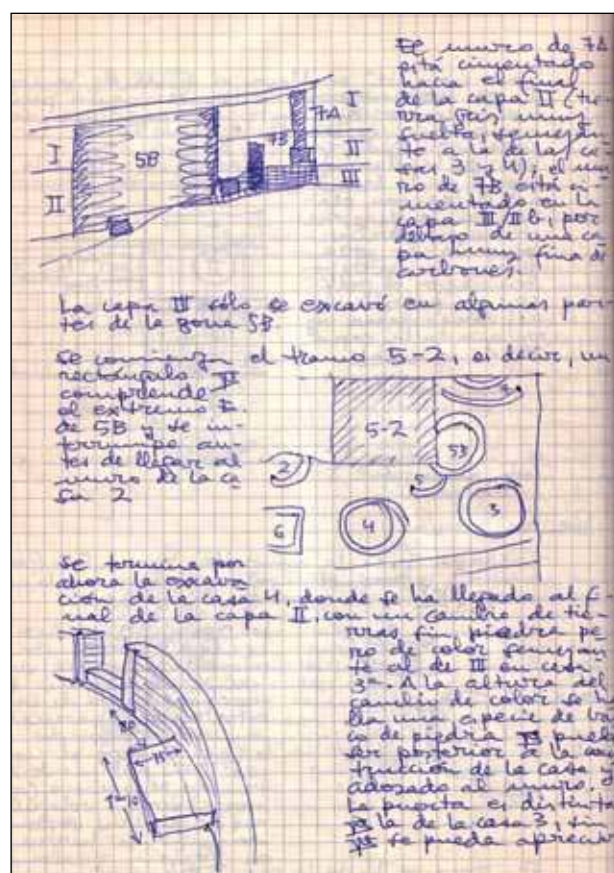 El muro de 7A
está cimentado
hacia el final
de la capa II (tie
rra gris muy
suelta, semejan
te a la de las ca
sas 3 y 4); el mu
ro de 7B está ci
mentado en la
capa III/IIb, por
debajo de una ca
pa muy fina de
carbones.
I
II
5B
7B
7A
I
II
III
La capa III sólo se excavó en algunas par
tes de la zona 5B
Se comienza el tramo 5-2, es decir, un
rectángulo
comprende
el extremo E.
de 5B y se in-
terrumpe an-
tes de llegar al
muro de la ca
sa 2
5-2
5B
2
5
6
4
3
Se termina por
ahora la excava
ción de la casa 4, donde se ha llegado al fi
nal de la capa II, con un cambio de tie-
rras, sin piedra pe
ro de color semejan
te al de III en casa
3ª. A la altura del
cambio de color se ha
lla una especie de
co de piedra puede
ser posterior a la
trucción de la casa y
adosado al muro.
La puerta es distinta
a la de la casa 3, sin
se pueda apreciar
80
75
1-10